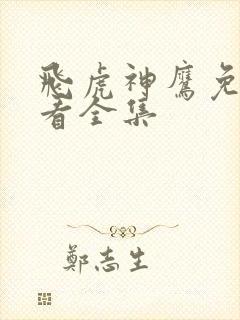 飛虎神鷹免
看全集
鄭志生